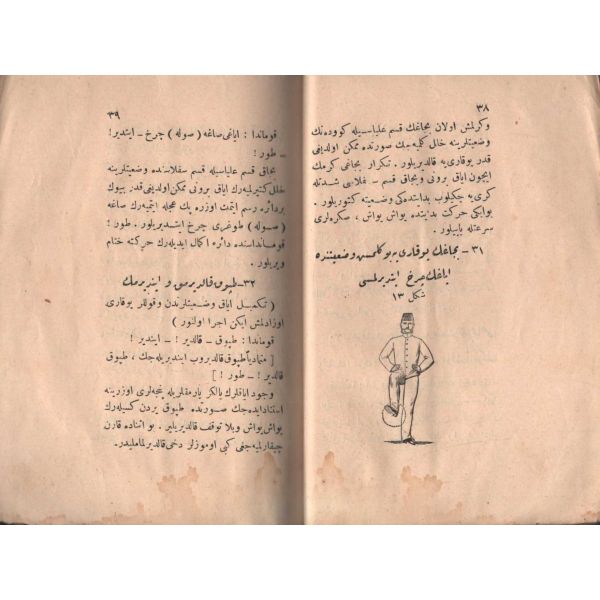 ٣٨
وكرلمش اولان بجاغك قسم علياسيله كوودەنك
وضعيتلرينه خلل كلميەجك صورتده ممكن اولديغى
قدر يوقارى يه قالديريلور. تكرار بجاغى كرمك
ايچون اياق برونى وبجاق قسم ـ سفلاسى شدتله
كرى يه چكيلوب بدايتدەكى وضعيته كتوريلور.
بوايكى حركت بدايتده يواش يواش، صكرەلرى
سرعتله ياپيلور.
٣١ ـ بجاغك يوقارى يه بوكلمسى وضعيتنده
اياغك چرخ ايتديرلمسى
شكل ١٣
٣٩
قوماندا : اياغى صاغه (صوله) چرخ ـ ايتدير!
ـ طور!
بجاق قسم علياسيله قسم سفلاسنده وضعيتلرينه
خلل كتيرلميەرك اياق برونى ممكن اولديغى قدر بيوك
بر دائره رسم ايتمك اوزره پك عجله ايتميەرك صاغه
(صوله) طوغرى چرخ ايتديريلور. طور!
قومانداسنده دائره اكمال ايديلەرك حركته ختام
ويريلور.
٣٢ ـ طپوق قالديرمق و اينديرمك
(تكميل اياق وضعيتلرندن وقوللر يوقارى
اوزادلمش ايكن اجرا اولنور)
قوماندا : طپوق ـ قالدير! ـ اينديير!
[متمادياً طپوق قالديروب اينديريلەجك، طپوق
قالدير! ـ طور!]
وجود اياقلرك يالكز پارمقلريله پنجەلرى اوزرينه
استنادايدەجك صورتده طپوق يردن كسيلەرك
يواش يواش وبلا توقف قالديريلير. بو اثناده قارن
چيقارلميەجغى كبى اوموزلر دخى قالديرلماملىدر.